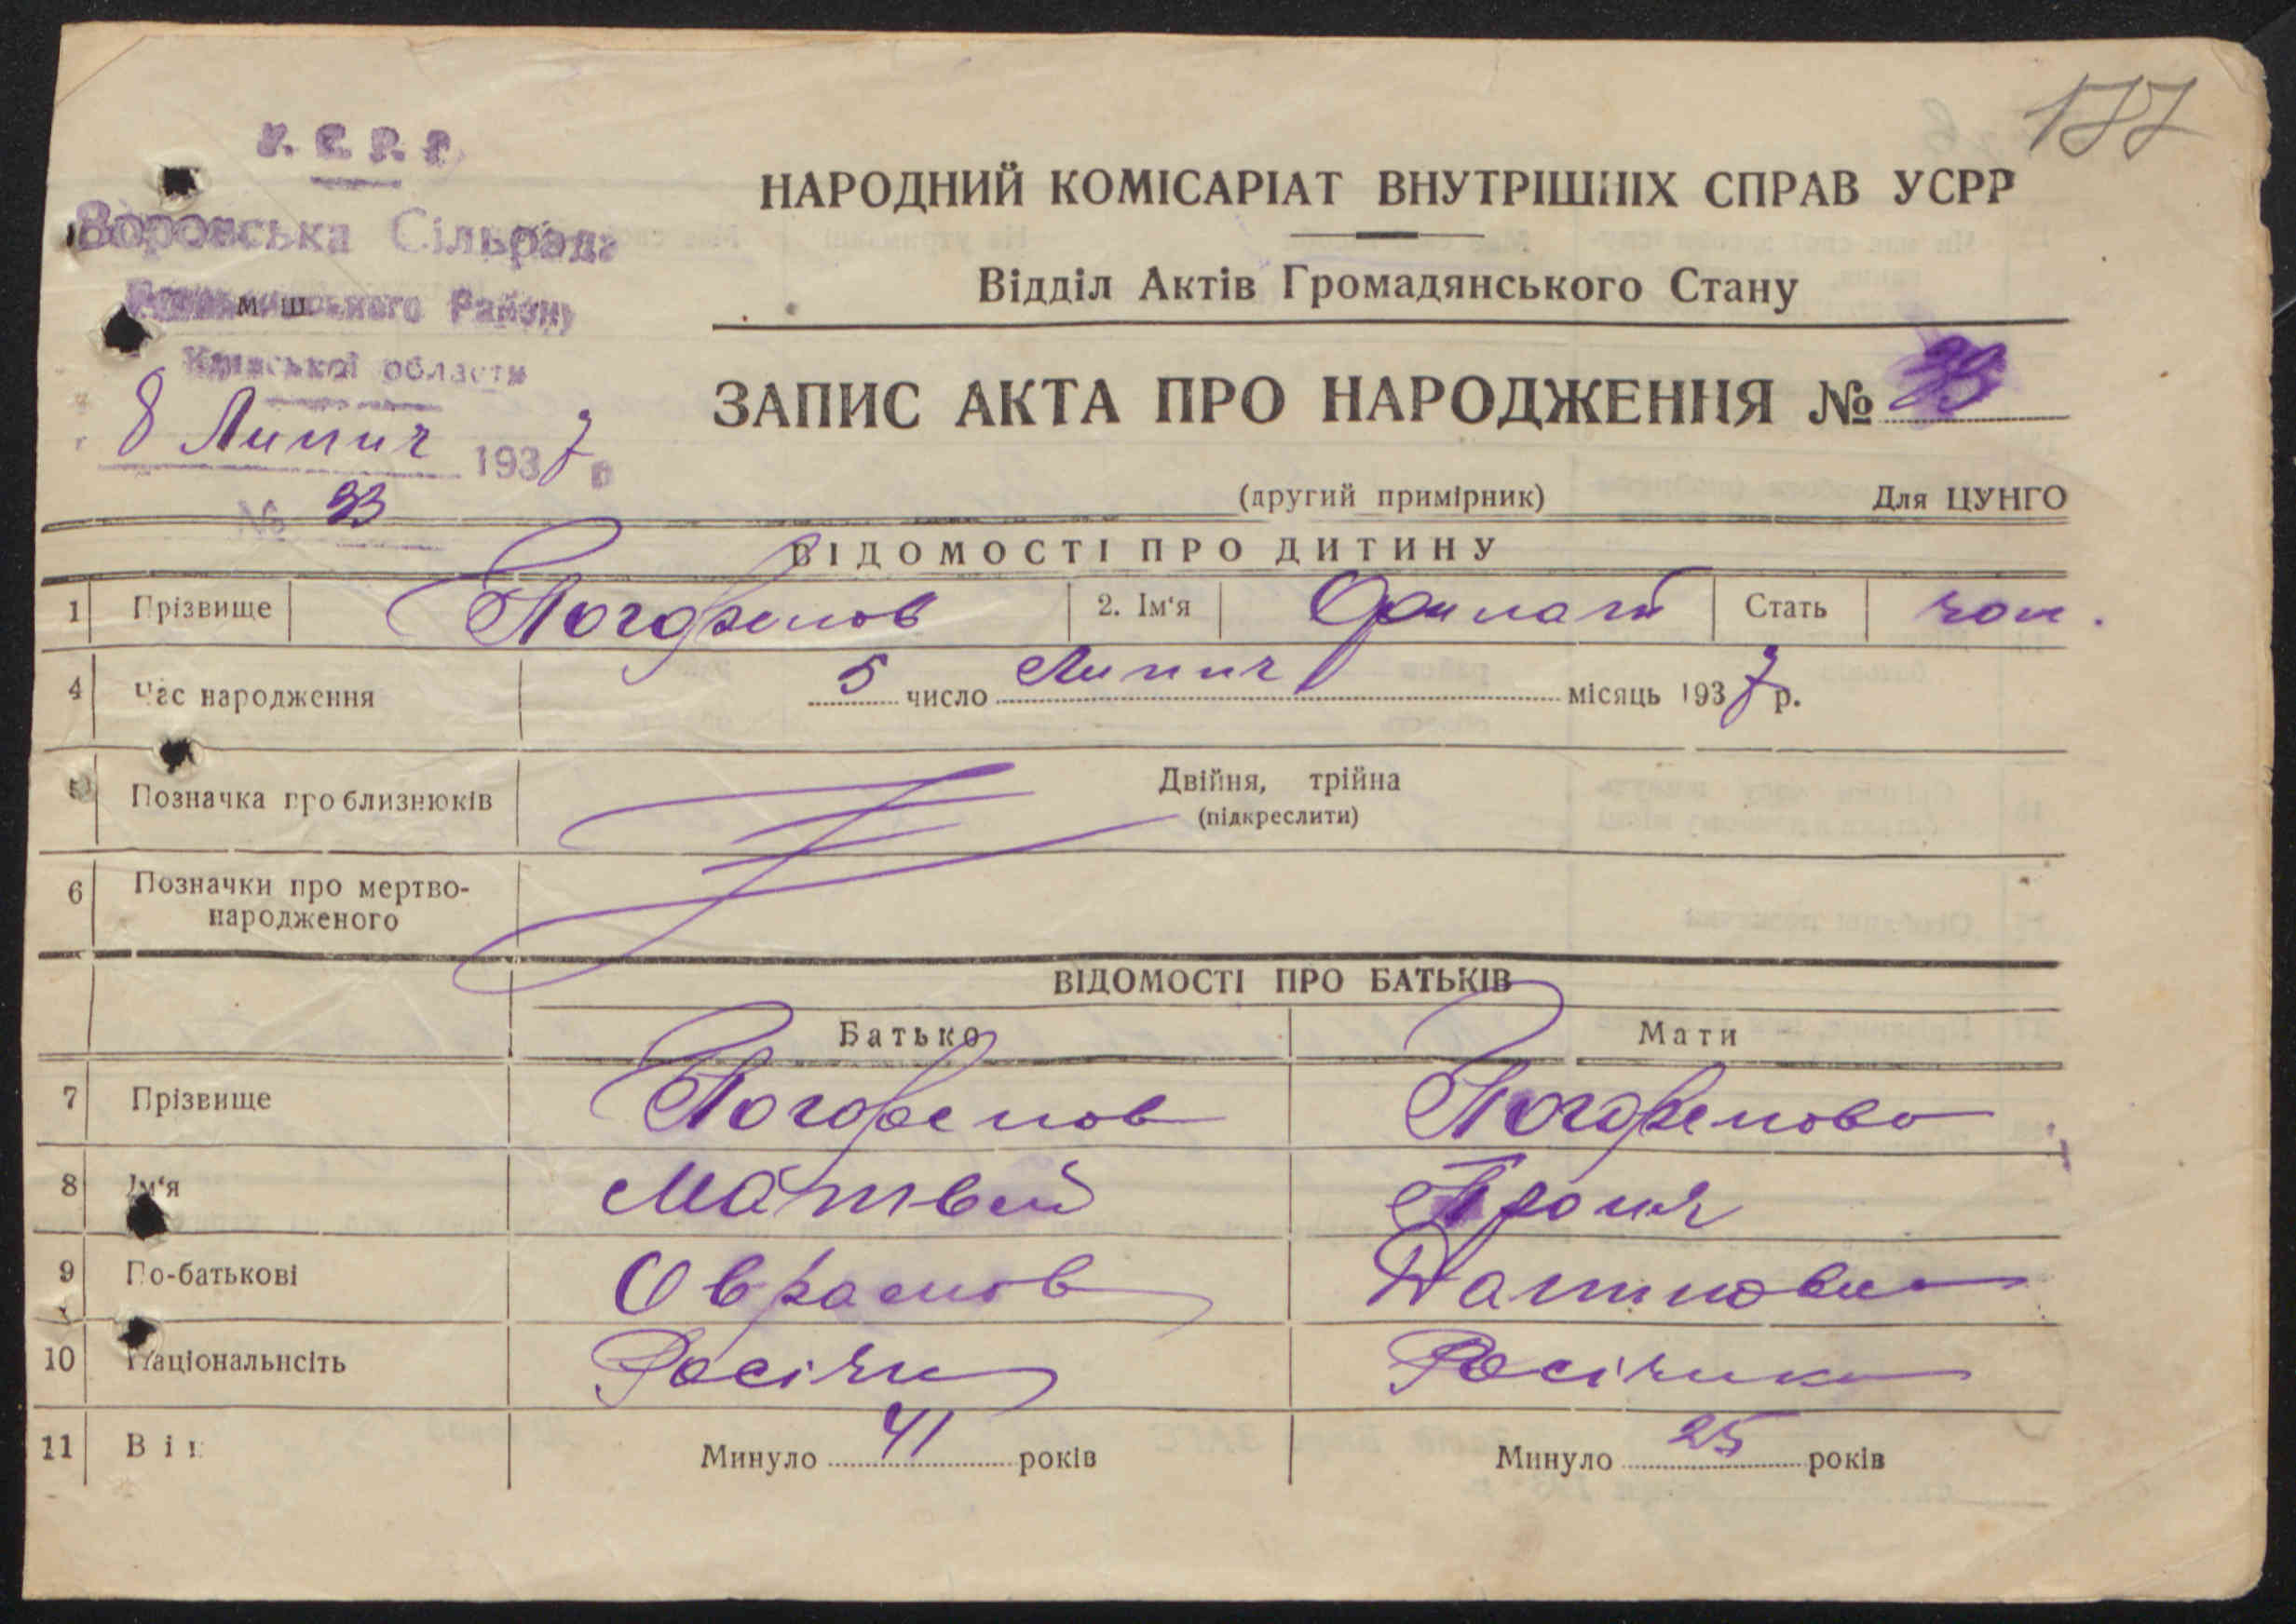 177
У. С. Р. Р.
НАРОДНИЙ КОМІСАРІАТ ВНУТРІШНІХ СПРАВ УСРР
Сільрада
Району
Відділ Актів Громадянського Стану
області
ЗАПИС АКТА ПРО НАРОДЖЕННЯ № 33
8 Липня 1937 р
№ 33
(другий примірник) Для ЦУНГО
ВІДОМОСТІ ПРО ДИТИНУ
1 Прізвище 2. Ім'я Стать чол.
4 Час народження 5 число Липня місяць 1937 р.
5 Позначка про близнюків Двійня, трійна
(підкреслити)
6 Позначки про мертво-
народженого
ВІДОМОСТІ ПРО БАТЬКІВ
Батько Мати
7 Прізвище
8 Ім'я Матвей
9 По-батькові Оврамов
10 Національнсіть
11 Вік Минуло 41 років Минуло 25 років